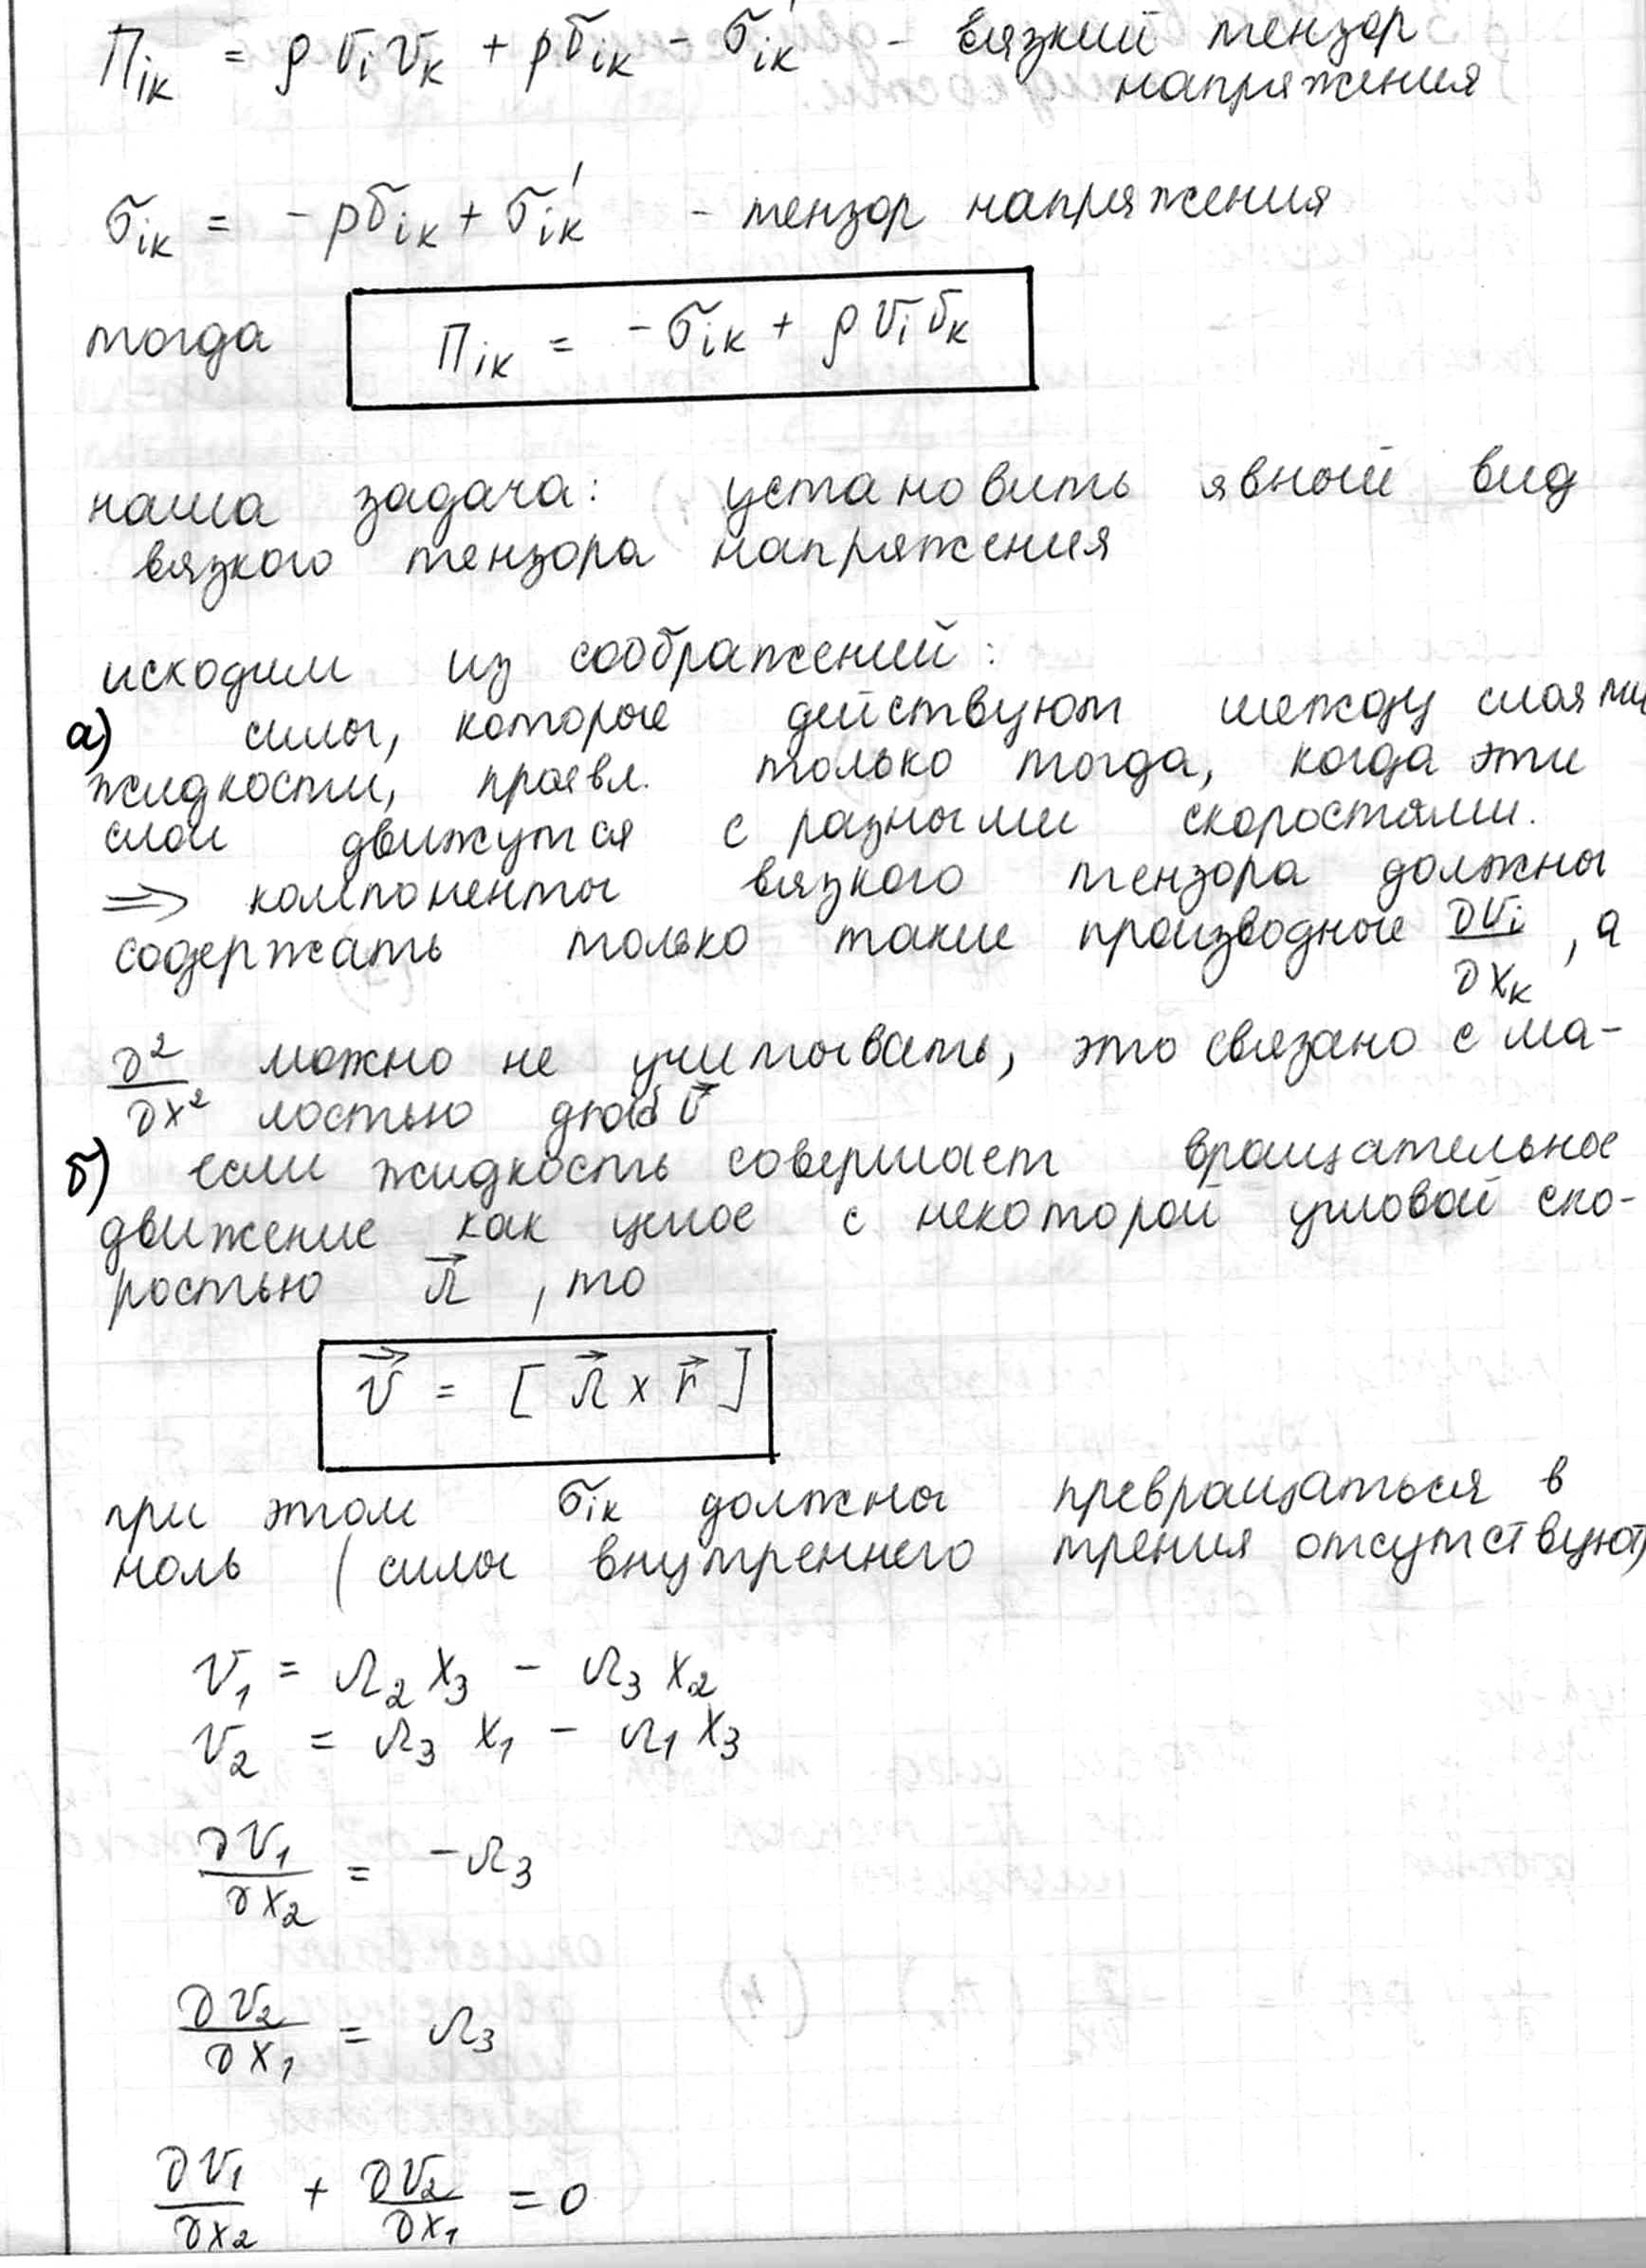 Πik = ρ vi vk + pδik − σ'ik - вязкий тензор
напряжения
σik = −pδik + σ'ik - тензор напряжения
тогда Πik = −σik + ρ vi vk
наша задача: установить явный вид
вязкого тензора напряжения
исходим из соображений:
а) силы, которые действуют между слоями
жидкости, проявл. только тогда, когда эти
слои движутся с разными скоростями.
⇒ компоненты вязкого тензора должны
содержать только такие производные ∂vi/∂xk, а
∂²/∂x² можно не учитывать, это связано с ма-
лостью grad v⃗
б) если жидкость совершает вращательное
движение как целое с некоторой угловой ско-
ростью Ω⃗, то
v⃗ = [Ω⃗ × r⃗]
при этом σik должны превращаться в
ноль (силы внутреннего трения отсутствуют)
v1 = Ω2 x3 − Ω3 x2
v2 = Ω3 x1 − Ω1 x3
∂v1/∂x2 = −Ω3
∂v2/∂x1 = Ω3
∂v1/∂x2 + ∂v2/∂x1 = 0